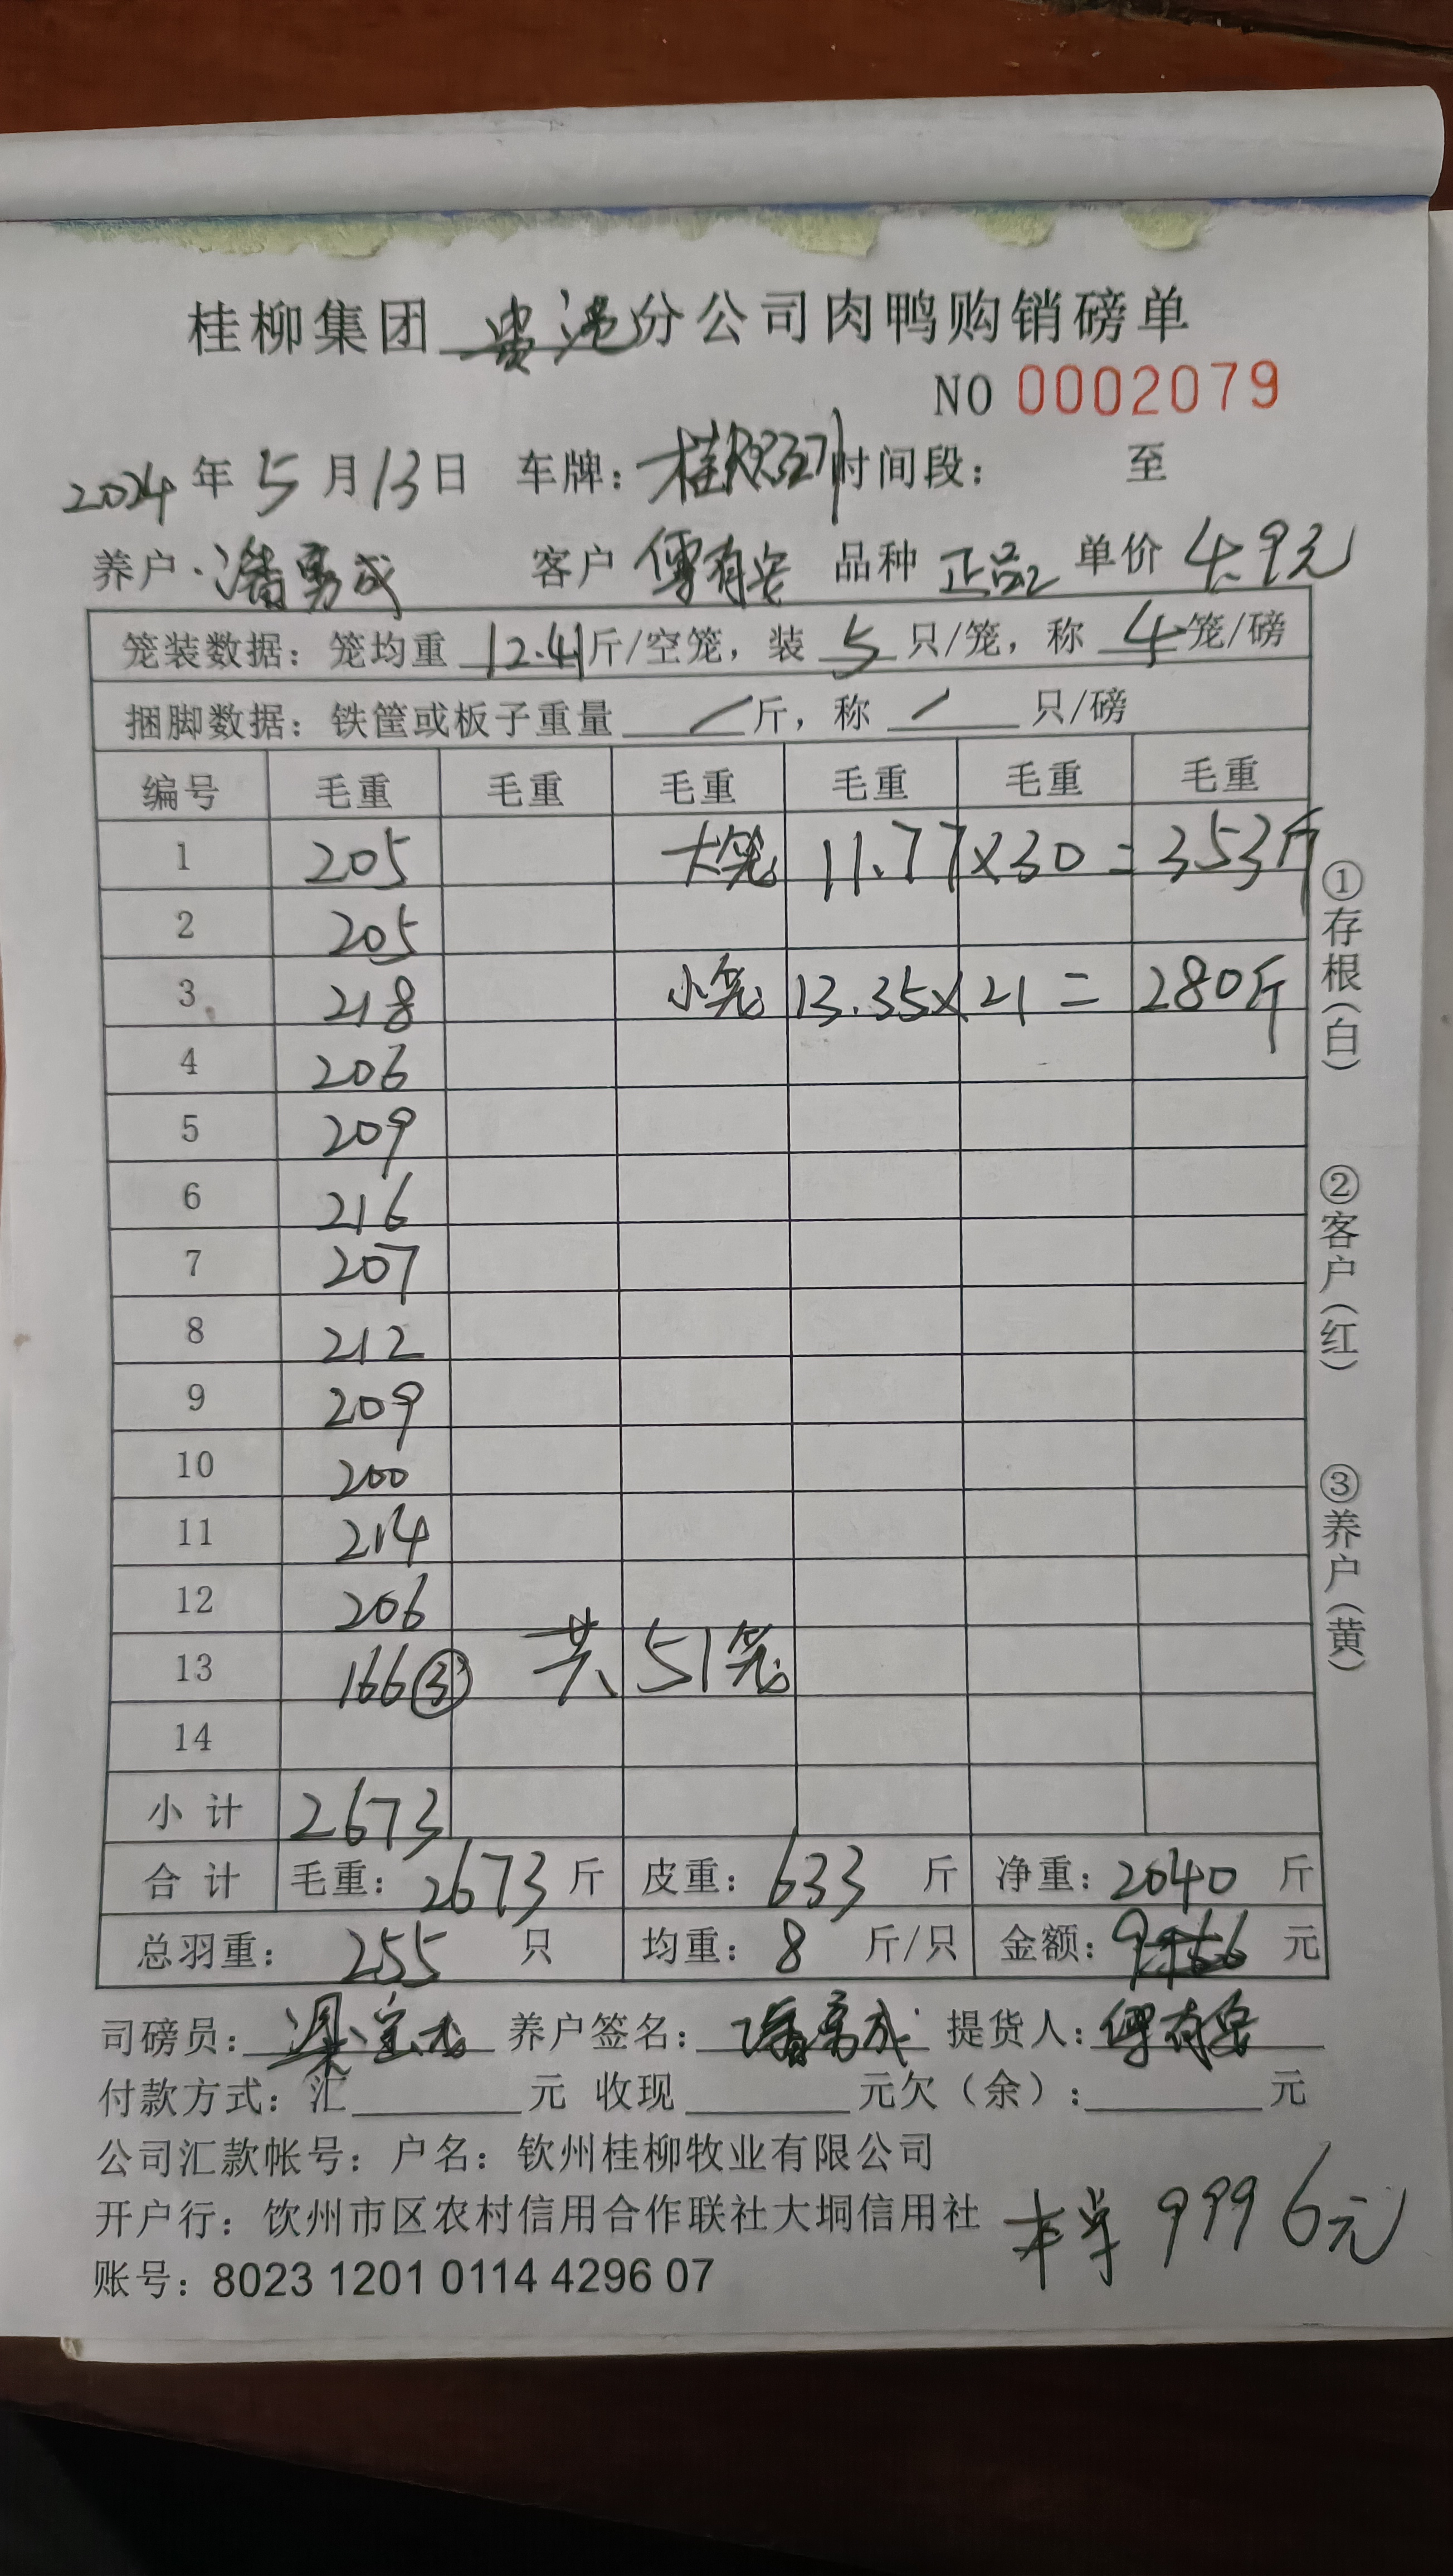 桂柳集团 贵港 分公司肉鸭购销磅单
NO 0002079
2024 年 5 月 13 日 车牌: 时间段: 至
养户 潘勇成 客户 傅有宏 品种 正品 单价 4.9元
笼装数据: 笼均重 12.41 斤/空笼, 装 5 只/笼, 称 4 笼/磅
捆脚数据: 铁筐或板子重量 / 斤, 称 / 只/磅
编号 毛重 毛重 毛重 毛重 毛重 毛重
1 205 大笼 11.77×30=353斤
2 205
3 218 小笼 13.35×21=280斤
4 206
5 209
6 216
7 207
8 212
9 209
10 200
11 214
12 206
13 166③ 共51笼
14
小计 2673
合计 毛重: 2673 斤 皮重: 633 斤 净重: 2040 斤
总羽重: 255 只 均重: 8 斤/只 金额: 元
司磅员: 养户签名: 潘勇成 提货人: 傅有宏
付款方式: 汇 元 收现 元欠(余): 元
公司汇款帐号: 户名: 钦州桂柳牧业有限公司
开户行: 饮州市区农村信用合作联社大垌信用社
本单 9996元
账号: 8023 1201 0114 4296 07
①存根(白)
②客户(红)
③养户(黄)